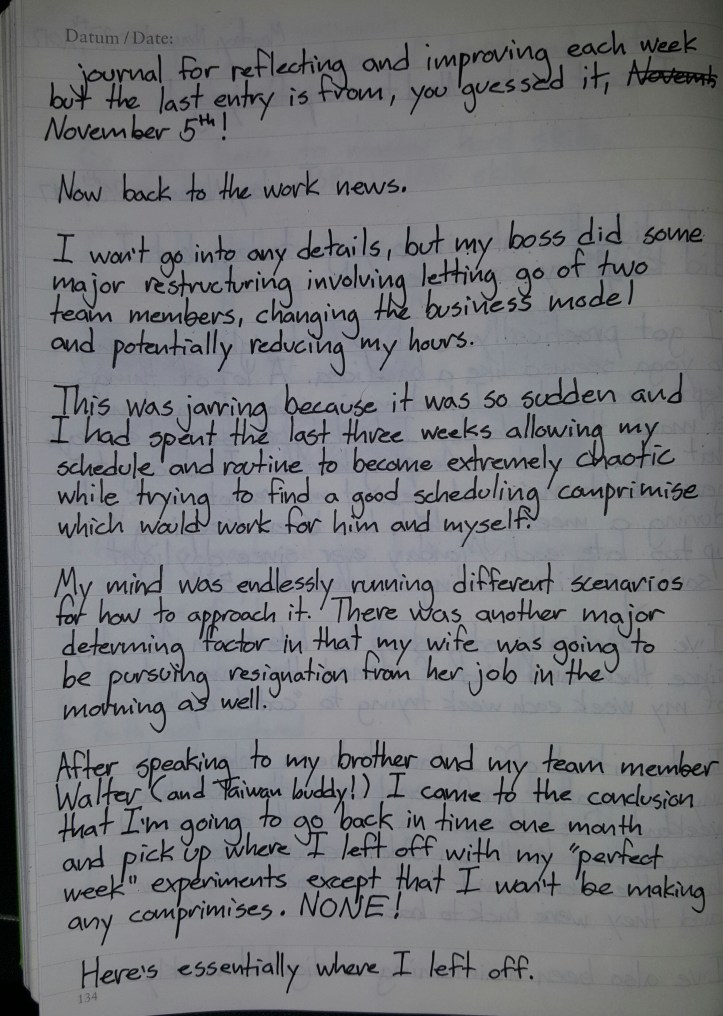 Datum / Date:
journal for reflecting and improving each week
but the last entry is from, you guessed it, Novemb
November 5th!
Now back to the work news.
I won't go into any details, but my boss did some
major restructuring involving letting go of two
team members, changing the business model
and potentially reducing my hours.
This was jarring because it was so sudden and
I had spent the last three weeks allowing my
schedule and routine to become extremely chaotic
while trying to find a good scheduling comprimise
which would work for him and myself.
My mind was endlessly running different scenarios
for how to approach it. There was another major
determing factor in that my wife was going to
be pursuing resignation from her job in the
morning as well.
After speaking to my brother and my team member
Walter (and Taiwan buddy!) I came to the conclusion
that I'm going to go back in time one month
and pick up where I left off with my "perfect
week" experiments except that I won't be making
any comprimises. NONE!
Here's essentially where I left off.
134